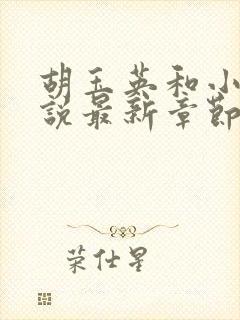 胡玉英和小
說最新章節
荣仕星